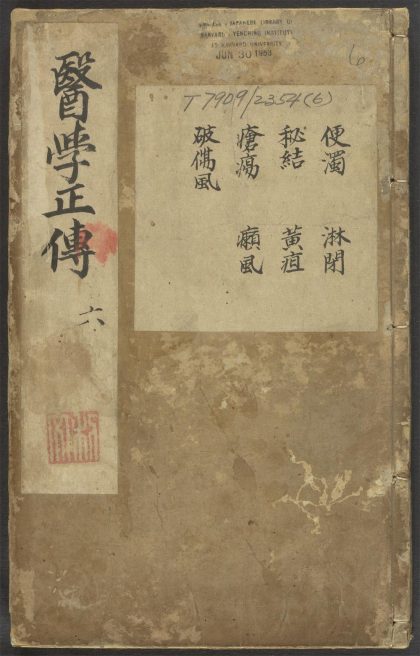 JAPANESE LIBRARY OF
HARVARD - YENCHING INSTITUTE
AT HARVARD UNIVERSITY
JUN 30 1953
6
T 7909/2354(6)
便濁 淋閉
秘結 黃疸
瘡瘍 癩風
破傷風
醫學正傳
六